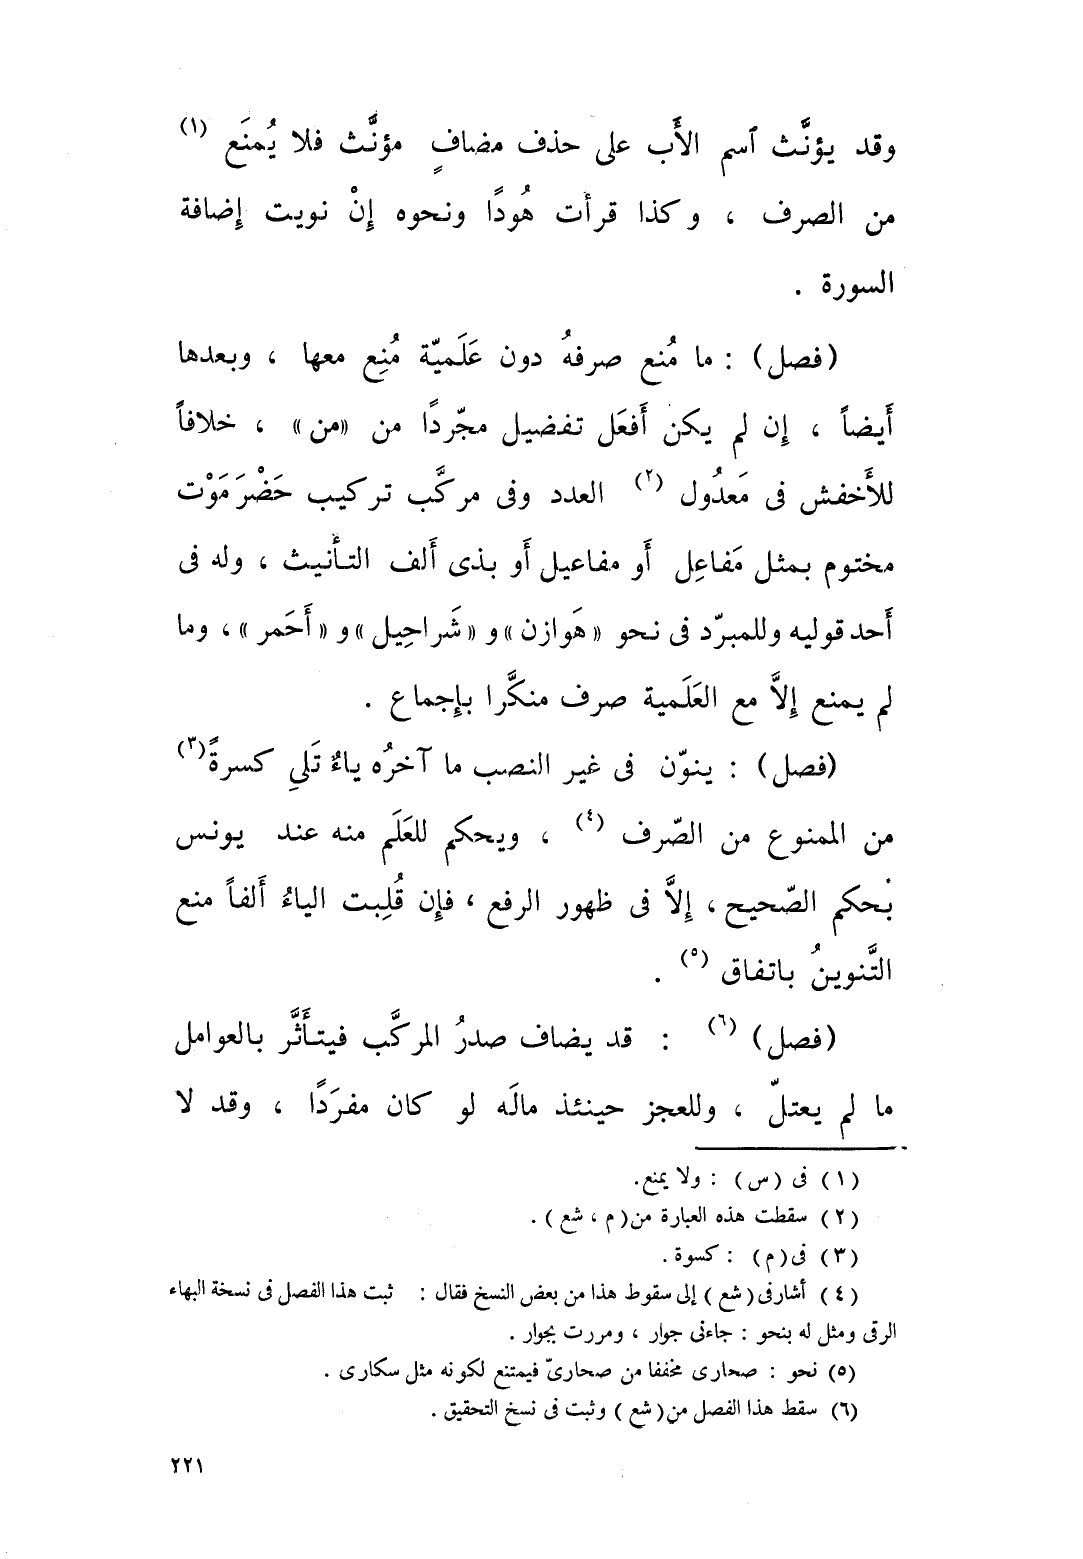 وقد يؤنَّث ٱسم الأَب على حذف مضافٍ مؤنَّث فلا يُمنَع (١)
من الصرف ، وكذا قرأت هُودًا ونحوه إنْ نويت إضافة
السورة .
(فصل) : ما مُنع صرفهُ دون عَلَميّة مُنِع معها ، وبعدها
أَيضاً ، إن لم يكن أَفعَل تفضيل مجّردًا من «من» ، خلافاً
للأَخفش فى مَعدُول (٢) العدد وفى مركَّب تركيب حَضْرَمَوْت
مختوم بمثل مَفاعِل أَو مفاعيل أَو بذى أَلف التأنيث ، وله فى
أَحد قوليه وللمبرّد فى نحو «هَوازن» و «شَراحِيل» و «أَحَمر» ، وما
لم يمنع إلاَّ مع العَلَمية صرف منكَّرا بإجماع .
(فصل) : ينوّن فى غير النصب ما آخرُه ياءٌ تَلىِ كسرةً (٣)
من الممنوع من الصّرف (٤) ، ويحكم للعَلَم منه عند يونس
بْحكم الصّحيح ، إلاَّ فى ظهور الرفع ، فإن قُلِبت الياءُ أَلفاً منع
التَّنوينُ باتفاق (٥) .
(فصل) (٦) : قد يضاف صدرُ المركَّب فيتأَثَّر بالعوامل
ما لم يعتلّ ، وللعجز حينئذ مالَه لو كان مفرَدًا ، وقد لا
(١) فى (س) : ولا يمنع.
(٢) سقطت هذه العبارة من (م ، شع) .
(٣) فى (م) : كسوة .
(٤) أشار فى (شع) إلى سقوط هذا من بعض النسخ فقال : ثبت هذا الفصل فى نسخة البهاء
الرقى ومثل له بنحو : جاءنى جوار ، ومررت بجوار .
(٥) نحو : صحارى مخففا من صحارىّ فيمتنع لكونه مثل سكارى .
(٦) سقط هذا الفصل من (شع) وثبت فى نسخ التحقيق .
٢٢١